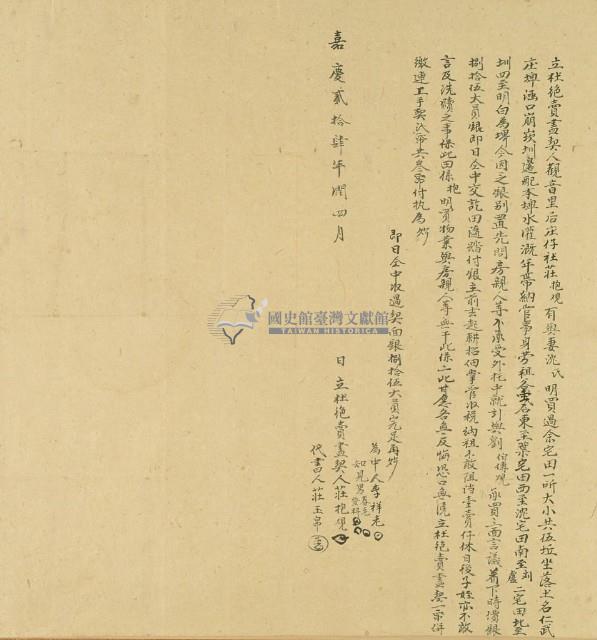 立杜絕賣盡契人觀音里后庄仔社莊抱現有與妻沈氏明買過余宅田一所大小共伍坵坐落土名仁武
庄埤涵口崩崁圳邊配本埤水灌溉年帶納管事身勞租各壹石東至葉宅田西至沈宅田南至盧劉二宅田北至
圳四至明白為界今因乏銀別置先問房親人等不承受外托中就引與劉伯傳觀承買三面言議着下時價銀
捌拾伍大員銀即日仝中交訖田隨踏付銀主前去起耕招佃掌管收稅納租不敢阻當壹賣仟休日後子姪亦不敢
言及洗贖之事保此田係抱明買物業與房親人等無干此係二比甘愿各無反悔恐口無憑立杜絕賣盡契一紙併
繳連上手契貳紙共叁紙付执為炤
即日仝中收過契面銀捌拾伍大員完足再炤
為中人李祥老
如見男
代書人莊玉帛
嘉慶貳拾肆年閏四月 日立杜絕賣盡契人莊抱現
國史館臺灣文獻館
TAIWAN HISTORICA